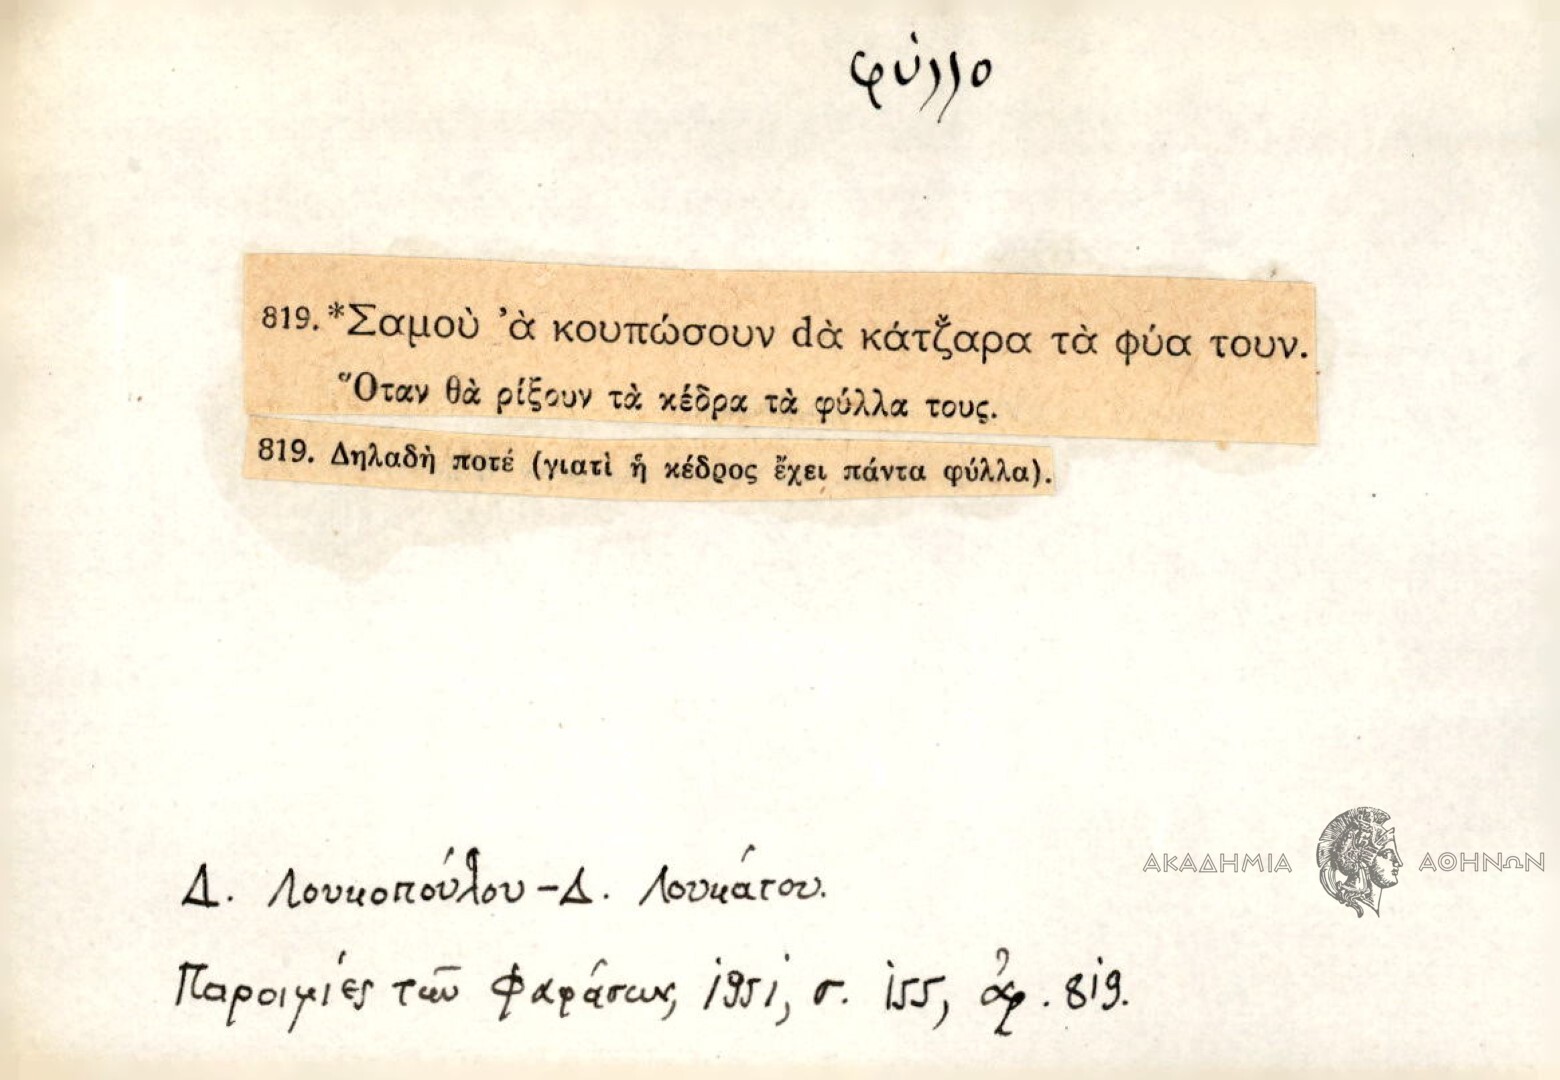 φύλλο
819. *Σαμοὺ ’ὰ κουπώσουν dὰ κάτζ̌αρα τὰ φύα τουν.
Ὅταν θὰ ρίξουν τὰ κέδρα τὰ φύλλα τους.
819. Δηλαδὴ ποτέ (γιατὶ ἡ κέδρος ἔχει πάντα φύλλα).
ΑΚΑΔΗΜΙΑ ΑΘΗΝΩΝ
Δ. Λουκοπούλου – Δ. Λουκάτου.
Παροιμίες τῶν Φαράσων, 1951, σ. 155, ἀρ. 819.